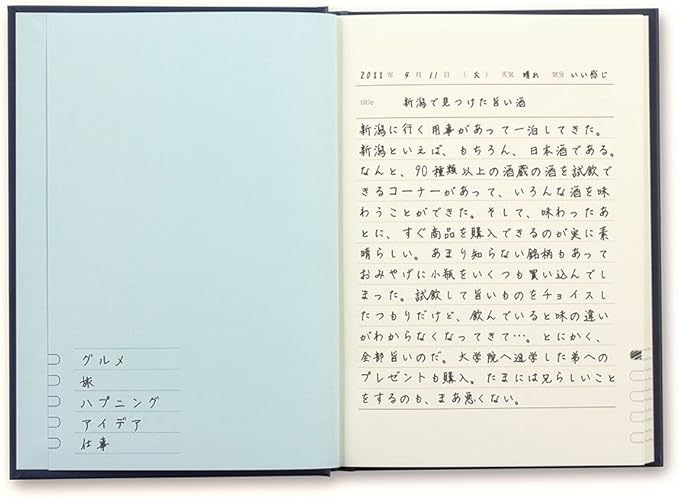 グルメ
旅
ハプニング
アイデア
仕事
2011年 4月 11日 （火） 天気 晴れ 気分 いい感じ
title 新潟で見つけた旨い酒
新潟に行く用事があって一泊してきた。
新潟といえば、もちろん、日本酒である。
なんと、90種類以上の酒蔵の酒を試飲で
きるコーナーがあって、いろんな酒を味
わうことができた。そして、味わったあ
とに、すぐ商品を購入できるのが実に素
晴らしい。あまり知らない銘柄もあって
おみやげに小瓶をいくつも買い込んでし
まった。試飲して旨いものをチョイスし
たつもりだけど、飲んでいると味の違い
がわからなくなってきて…。とにかく、
全部旨いのだ。大学院へ進学した弟への
プレゼントも購入。たまには兄らしいこと
をするのも、まあ悪くない。